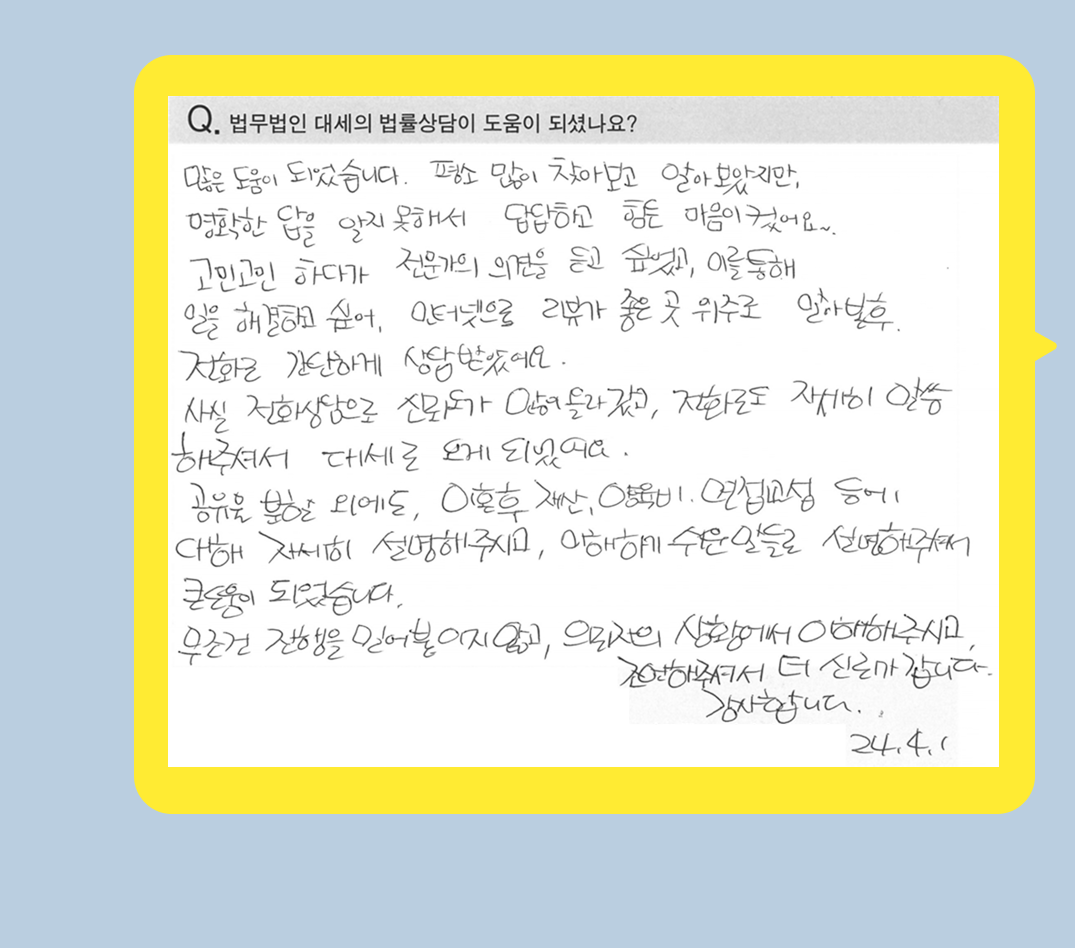 Q. 법무법인 대세의 법률상담이 도움이 되셨나요?
많은 도움이 되었습니다. 평소 많이 찾아보고 알아보았지만,
명확한 답을 알지 못해서 답답하고 힘든 마음이 컸어요~.
고민고민 하다가 전문가의 의견을 듣고 싶었고, 이를 통해
일을 해결하고 싶어, 인터넷으로 리뷰가 좋은 곳 위주로 알아본 후.
전화로 간단하게 상담 받았어요.
사실 전화상담으로 신뢰도가 많이 올라갔고, 전화로도 자세히 말씀
해주셔서 대세로 오게 되었어요.
공유물 분할 외에도, 이혼 후 재산, 양육비. 면접교섭 등에
대해 자세히 설명해주시고, 이해하기 쉬운 말들로 설명해주셔서
큰 도움이 되었습니다.
무조건 진행을 밀어붙이지 않고, 의뢰자의 상황에서 이해해주시고,
조언해주셔서 더 신뢰가 갑니다.
감사합니다.
24.4.1